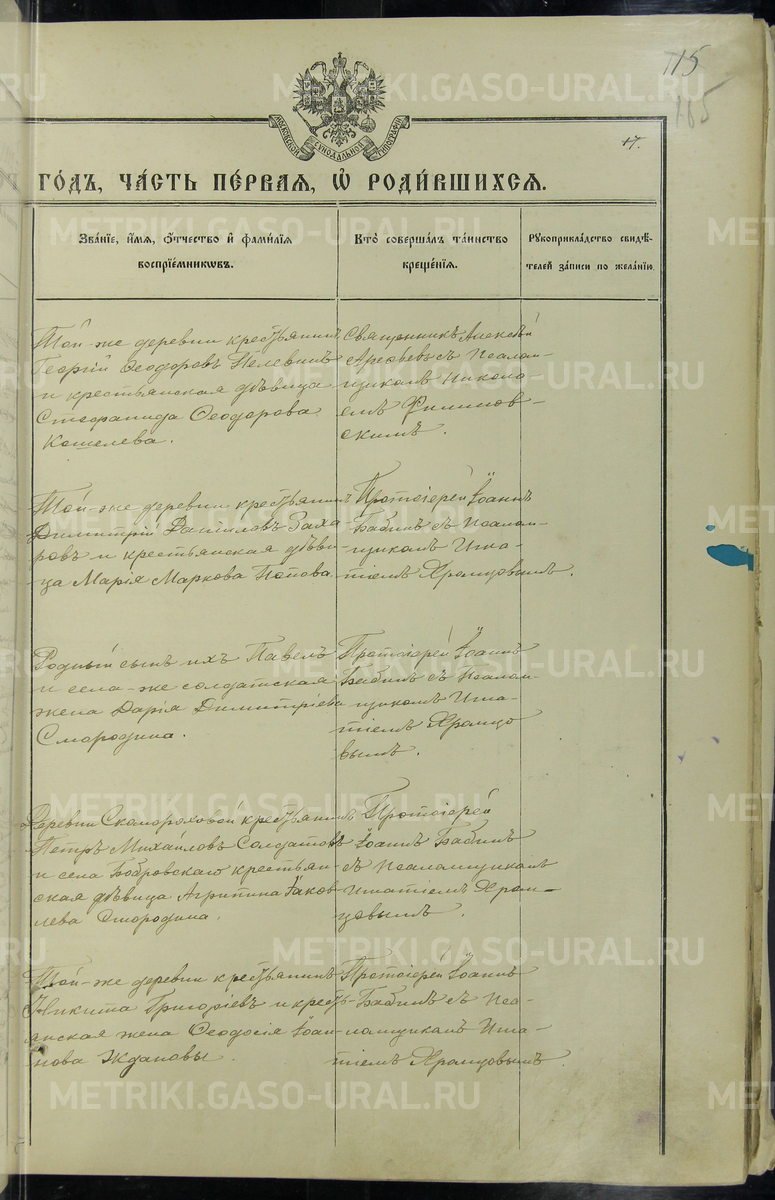 115
105
17.
МОСКОВСКОЙ СѴНОДАЛЬНОЙ ТИПОГРАФІИ
ГО́ДЪ, ЧА́СТЬ ПЕ́РВАЯ, Ѡ҆ РОДИ́ВШИХСЯ.
Зва́нїе, и҆́мя, ѻ҆́тчество и҆ фами́лїя
воспрїе́мниковъ.
Кто̀ соверша́лъ та́инство
креще́нїя.
Рукоприкла́дство свидѣ́-
телей за́писи по жела́нїю.
Той-же деревни крестьянинъ
Георгій Ѳеодоровъ Пелевинъ
и крестьянская дѣвица
Стефанида Ѳеодорова
Кошелева.
Священникъ Алексѣй
Арефьевъ съ Псалом-
щикомъ Никола-
емъ Филинов-
скимъ.
Той-же деревни крестьянинъ
Димитрій Даніиловъ Заха-
ровъ и крестьянская дѣви-
ца Марія Маркова Попова.
Протоіерей Іоаннъ
Бабинъ съ Псалом-
щикомъ Игна-
тіемъ Храмцовымъ.
Родный сынъ ихъ Павелъ
и села-же солдатская
жена Дарія Димитріева
Смородина.
Протоіерей Іоаннъ
Бабинъ съ Псалом-
щикомъ Игна-
тіемъ Храмцо
вымъ.
Деревни Скомороховой крестьянинъ
Петръ Михайловъ Солдатовъ
и села Бобровскаго крестьян-
ская дѣвица Агрипина Іаков-
лева Смородина.
Протоіерей
Іоаннъ Бабинъ
съ Псаломщикомъ
Игнатіемъ Храм-
цовымъ.
Той-же деревни крестьянинъ
Никита Григоріевъ и кресть-
янская жена Ѳеодосія Іоан-
нова Ждановы.
Протоіерей Іоаннъ
Бабинъ съ Пса-
ломщикомъ Игна-
тіемъ Храмцовымъ.
METRIKI.GASO-URAL.RU